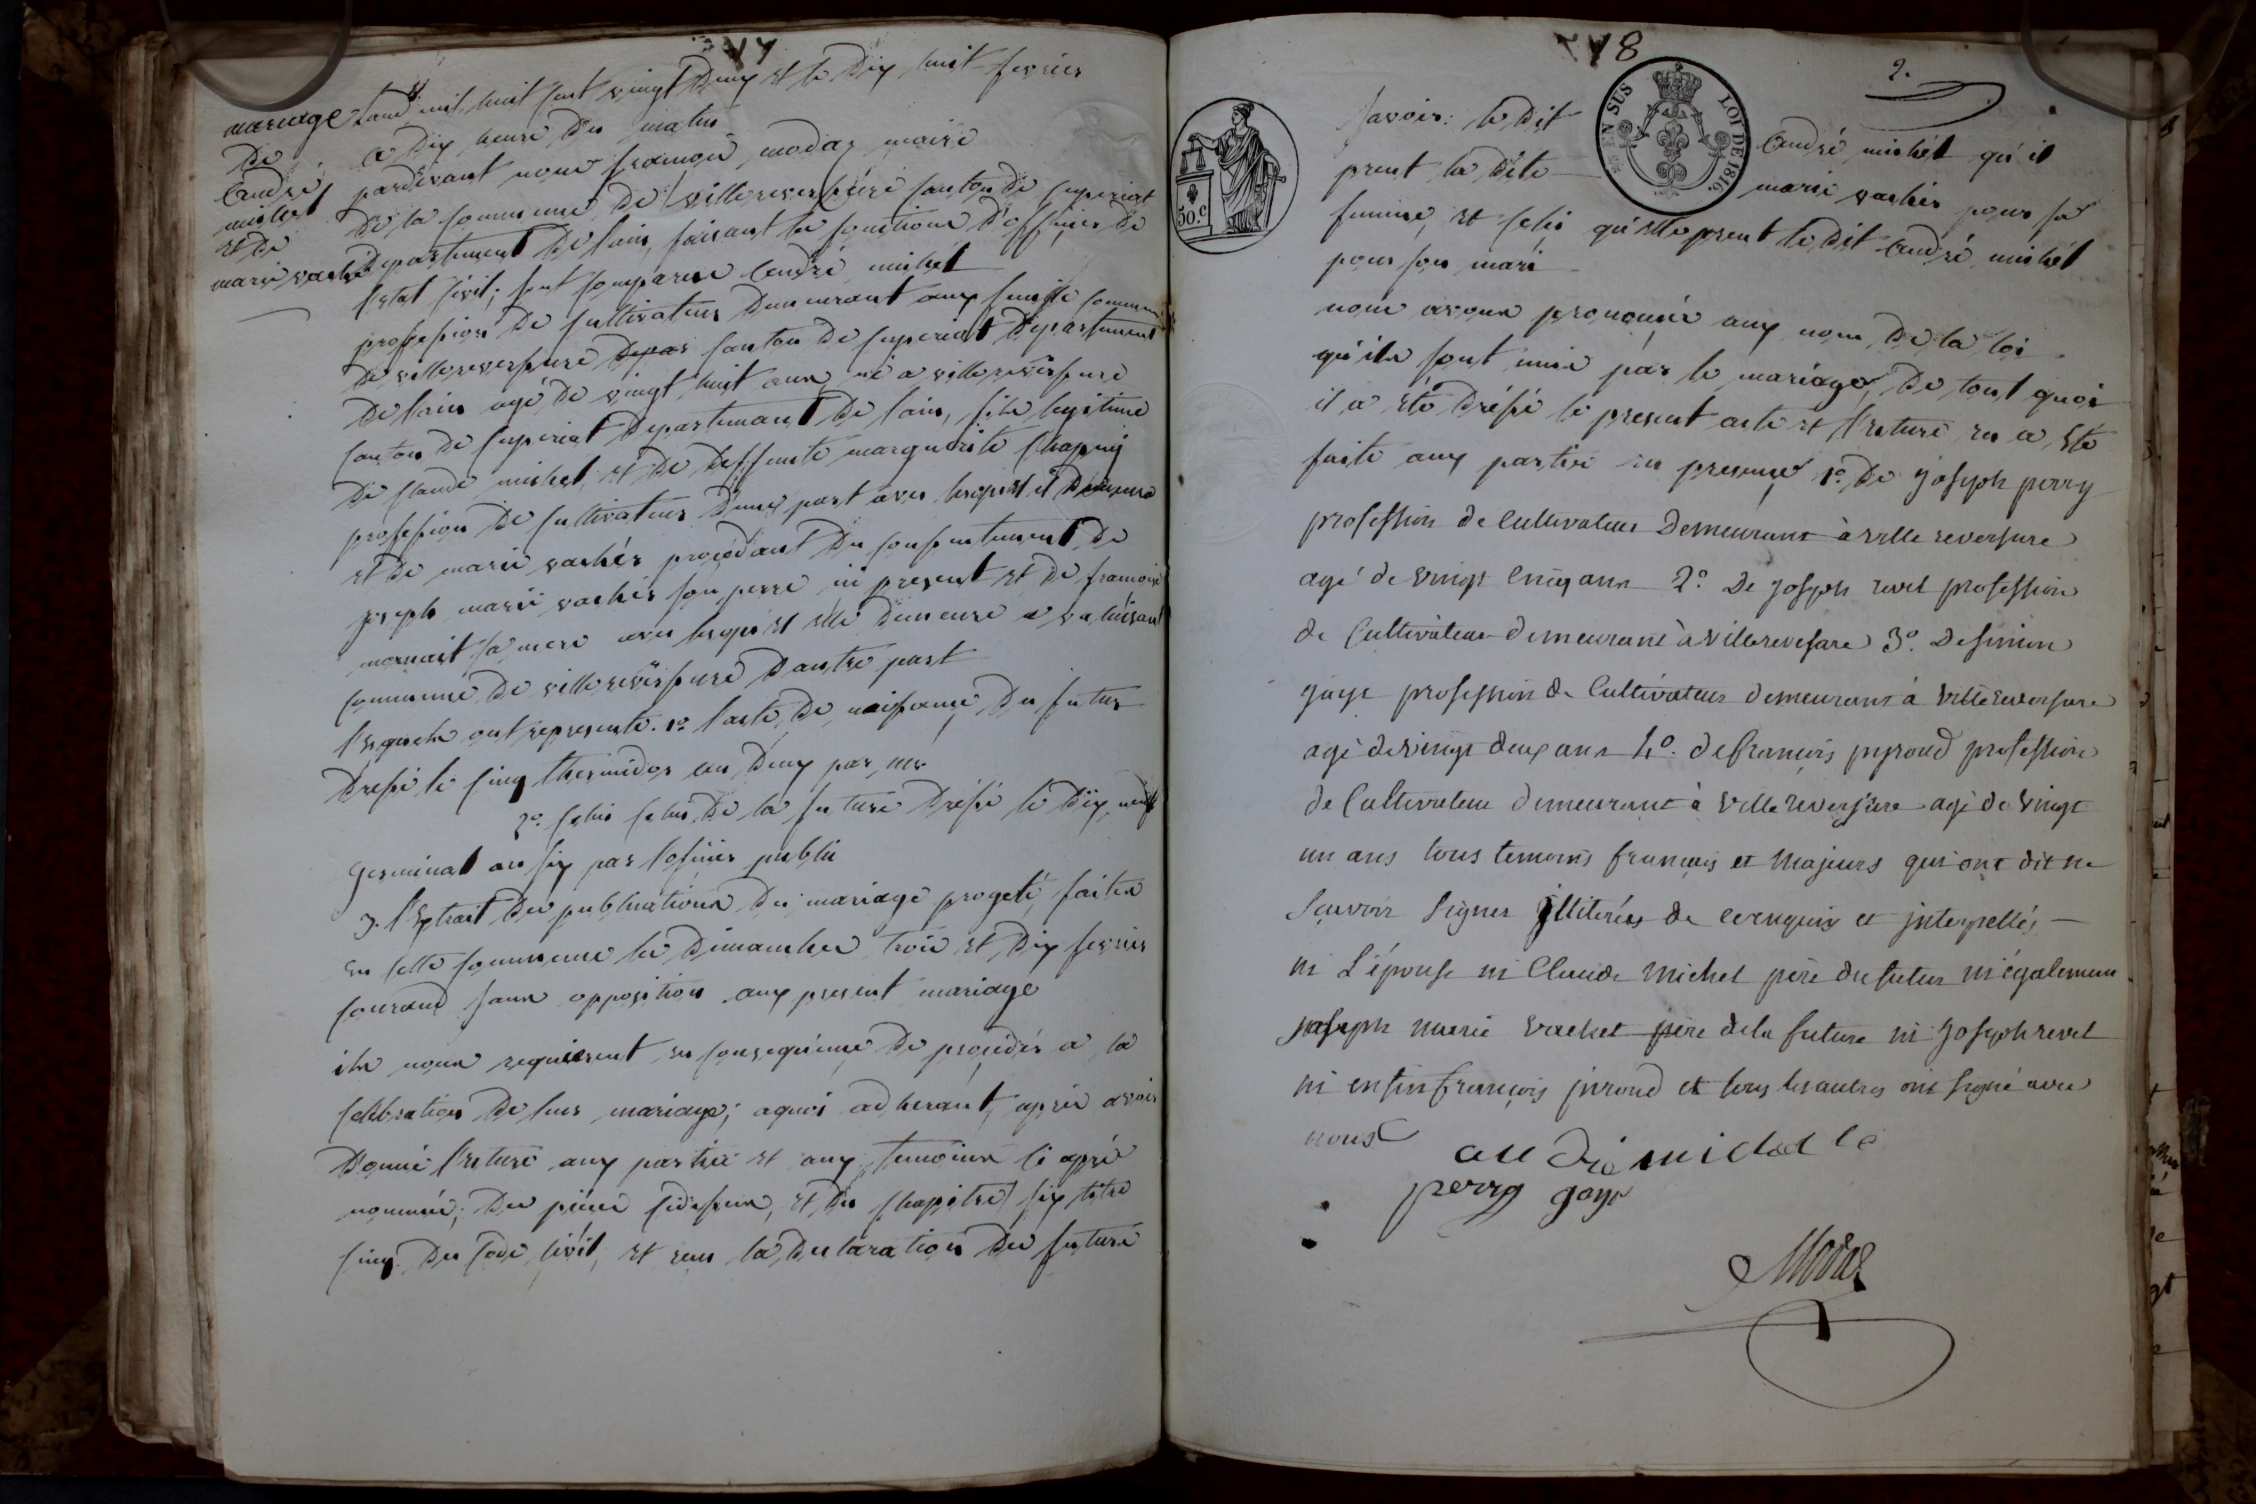 77
mariage
De
André
michel
et de
marie vacher
Land mil huit cent vingt Deux et le Dix huit fevrier
a Dix heure Du matin
pardevant nous françois modas maire
De la Commune De villereversure Canton De Ceyzeriat
Departement De lain, faisant les fonctions D'officier De
letat Civil; sont Comparus André michel
profession De Cultivateur Demeurant aux
De villereversure Canton De Ceyzeriat Departement
De lain agé De vingt huit ans né a villereversure
Canton De Ceyzeriat Departemant De lain, fils legitime
De Claude michel, et De Deffunte marguerite Chapuy
profession De Cultivateur Dune part avec lequel il Demeure
et De marie vacher procedant Du Consentement De
joseph marie vacher son perre ici present et De francoise
sa mere avec lesquel elle Demeure a
Commune De villereversure Dautre part
lesquels ont representé. 1º lacte De naissance Du futur
Dressé le Cinq thermidor an Deux par
2º Celui Celui De la future Dressé le Dix neuf
germinal an six par lofficier public
3. lExtrait Des publications Du mariage progeté, faites
en Cette Commune les Dimanches trois et Dix fevrier
Courand sans opposition aux present mariage
ils nous requierent en Consequence De proceder a la
Celebration De leur mariage; aquoi adherant, après avoir
Donné lecture aux parties et aux temoins Ci après
nommés; Des pièces Cidessus, et Du Chapitre six titre
Cinq Du Code Civil, et reçu la Declaration Des future
78
2.
EN SUS
LOI DE 1816.
50.C
Savoir: le Dit André michel qu'il
prent la Dite marie vacher pour sa
femme, et Celui qu'elle prent le Dit André michel
pour son mari
nous avons prononcé aux nom De la loi
qu'ils sont unis par le mariage, De tout quoi
il a été Dréssé le present acte et lecture en a été
faite aux partie en presence 1º De joseph perry
profession de Cultivateur Demeurant à ville reversure
agé de vingt cinq ans 2º De joseph revel profession
de Cultivateur demeurant à villereversure 3º De simon
goyt profession de Cultivateur demeurant à villereversure
agé de vingt deux ans 4º. de françois profession
de Cultivateur demeurant à villereversure agé de vingt
un ans tous temoins français et majeurs qui ont dit ne
sçavoir signer illiterés de ce requis et interpellés
ni L'épouse ni Claude michel père du futur ni également
joseph marie vacher père de la future ni joseph revel
ni enfin françois et tous les autres ont signé avec
nous
andré michel
perry goyt
Modas